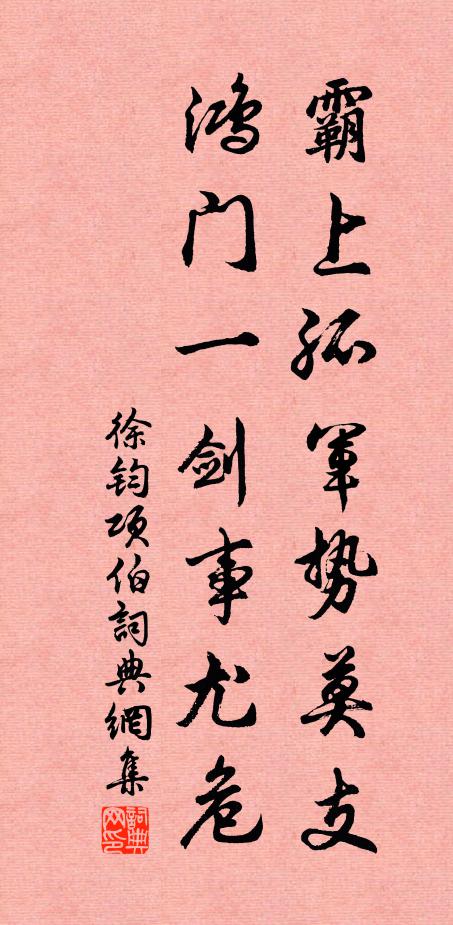 霸上孤军势莫支
鸿门一剑事尤危
徐钧项伯詞典網集
詞典网印